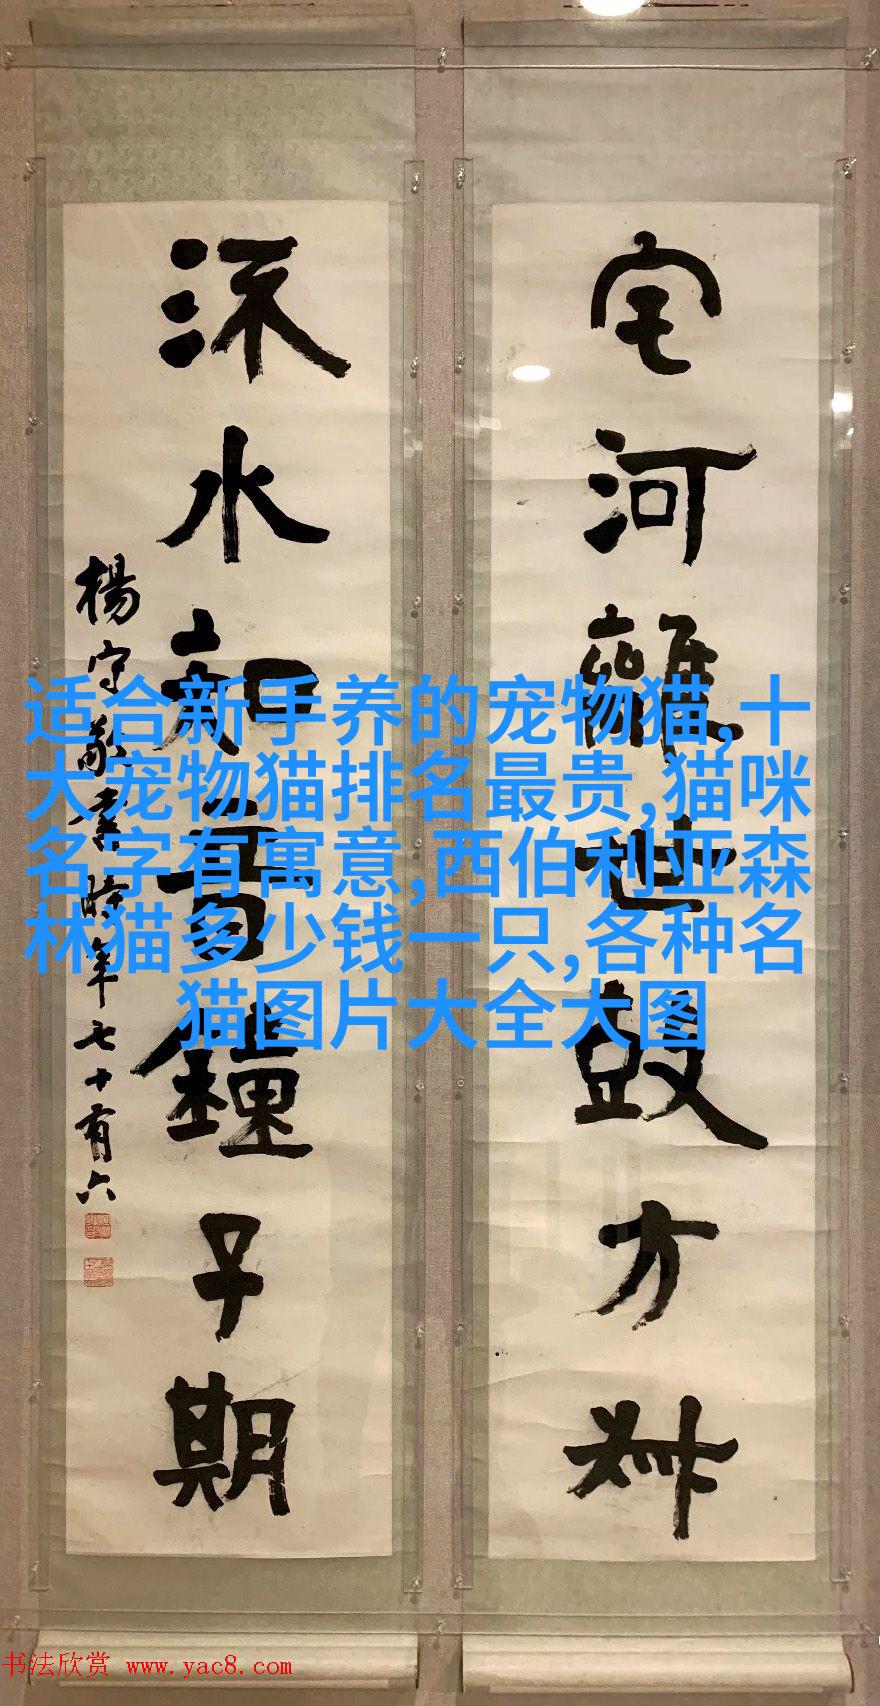 宅河離世鼓方叔
流水知音鐘子期
楊守敬書時年七十有六
适合新手养的宠物猫,十
大宠物猫排名最贵,猫咪
名字有寓意,西伯利亚森
林猫多少钱一只,各种名
猫图片大全大图
书法欣赏 www.yac8.com